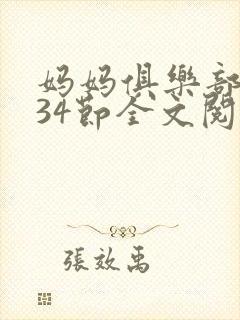 妈妈俱樂部
34節全文閱
張效禹